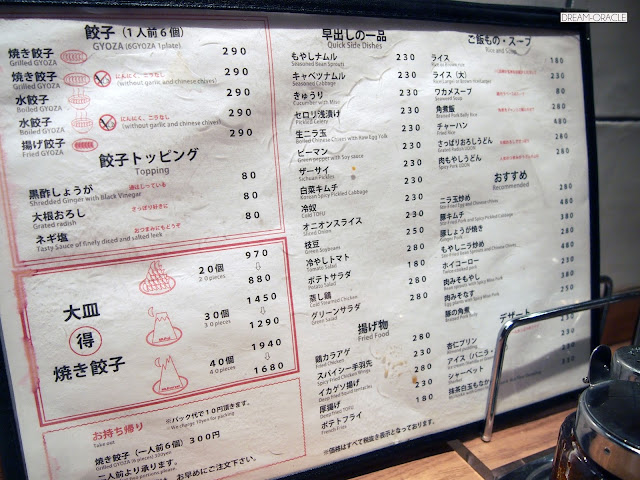 DREAM-ORACLE
餃子（1人前6個）
GYOZA (6GYOZA 1plate)
焼き餃子 290
Grilled GYOZA
焼き餃子 にんにく、こうなし 290
Grilled GYOZA (without garlic and chinese chives)
水餃子 290
Boiled GYOZA
水餃子 にんにく、こうなし 290
Boiled GYOZA (without garlic and chinese chives)
揚げ餃子 290
Fried GYOZA
餃子トッピング
Topping
黒酢しょうが 80
Shredded Ginger with Black Vinegar
大根おろし さっぱり好きに 80
Grated radish
ネギ塩 おつまみにもどうぞ 80
Tasty Sauce of finely diced and salted leek
大皿
得
焼き餃子
20個 970
20pieces 880
30個 1450
30pieces 1290
40個 1940
40pieces 1680
お持ち帰り
Take out
※パック代で10円頂きます。
焼き餃子（一人前6個）300円
Grilled GYOZA (6 pieces) 300yen
二人前より承ります。
お早めにご注文下さい。
早出しの一品
Quick Side Dishes
もやしナムル 230
Seasoned Bean Sprouts
キャベツナムル 230
Seasoned Cabbage
きゅうり 230
Cucumber with Miso
セロリ浅漬け 230
Pickled Celery
生ニラ玉 230
Boiled Chinese Chives with Raw Egg Yolk
ピーマン 230
Green pepper with Soy sauce
ザーサイ 230
Sichuan Pickles
白菜キムチ 230
Korean Spicy Pickled Cabbage
冷奴 230
Cold TOFU
オニオンスライス 230
Sliced Onion
枝豆 250
Green Soybeans
冷やしトマト 230
Tomato Salad
ポテトサラダ 230
Potato Salad
蒸し鶏 230
Cold Steamed Chicken
グリーンサラダ
Green Salad
揚げ物
Fried Food
鶏カラアゲ 280
Fried Chicken
スパイシー手羽先 280
Spicy Fried Chicken Wings
イカゲソ揚げ 230
厚揚げ 230
Deep Fried TOFU
ポテトフライ 180
French Fries
※価格はすべて税抜き表示となっております。
ご飯もの・スープ
Rice and Soup
ライス 180
ライス（大） 230
ワカメスープ 80
Seaweed Soup
角煮飯 280
Braised Pork Belly Rice
チャーハン 480
Fried Rice
さっぱりおろしうどん 280
Grated Radish UDON
肉もやしうどん 280
おすすめ
Recommended
ニラ玉炒め 280
豚キムチ 480
豚しょうが焼き 280
Ginger Pork
もやしニラ炒め
ホイコーロー
肉みそもやし 380
肉みそなす
豚の角煮
デザート
杏仁プリン
アイス（バニラ
シャーベット
Sherbet
抹茶白玉もなか